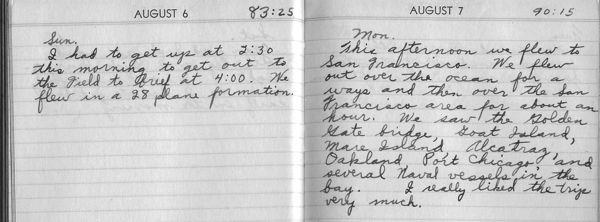 AUGUST 6 83:25
Sun.
I had to get up at 2:30
this morning to get out to
the Field to Brief at 4:00. We
flew in a 28 plane formation.
AUGUST 7 90:15
Mon.
This afternoon we flew to
San Francisco. We flew
out over the ocean for a
ways and then over the San
Francisco area for about an
hour. We saw the Golden
Gate bridge, Goat Island,
Mare Island, Alcatraz,
Oakland, Port Chicago, and
several Naval vessels in the
bay. I really liked the trip
very much.